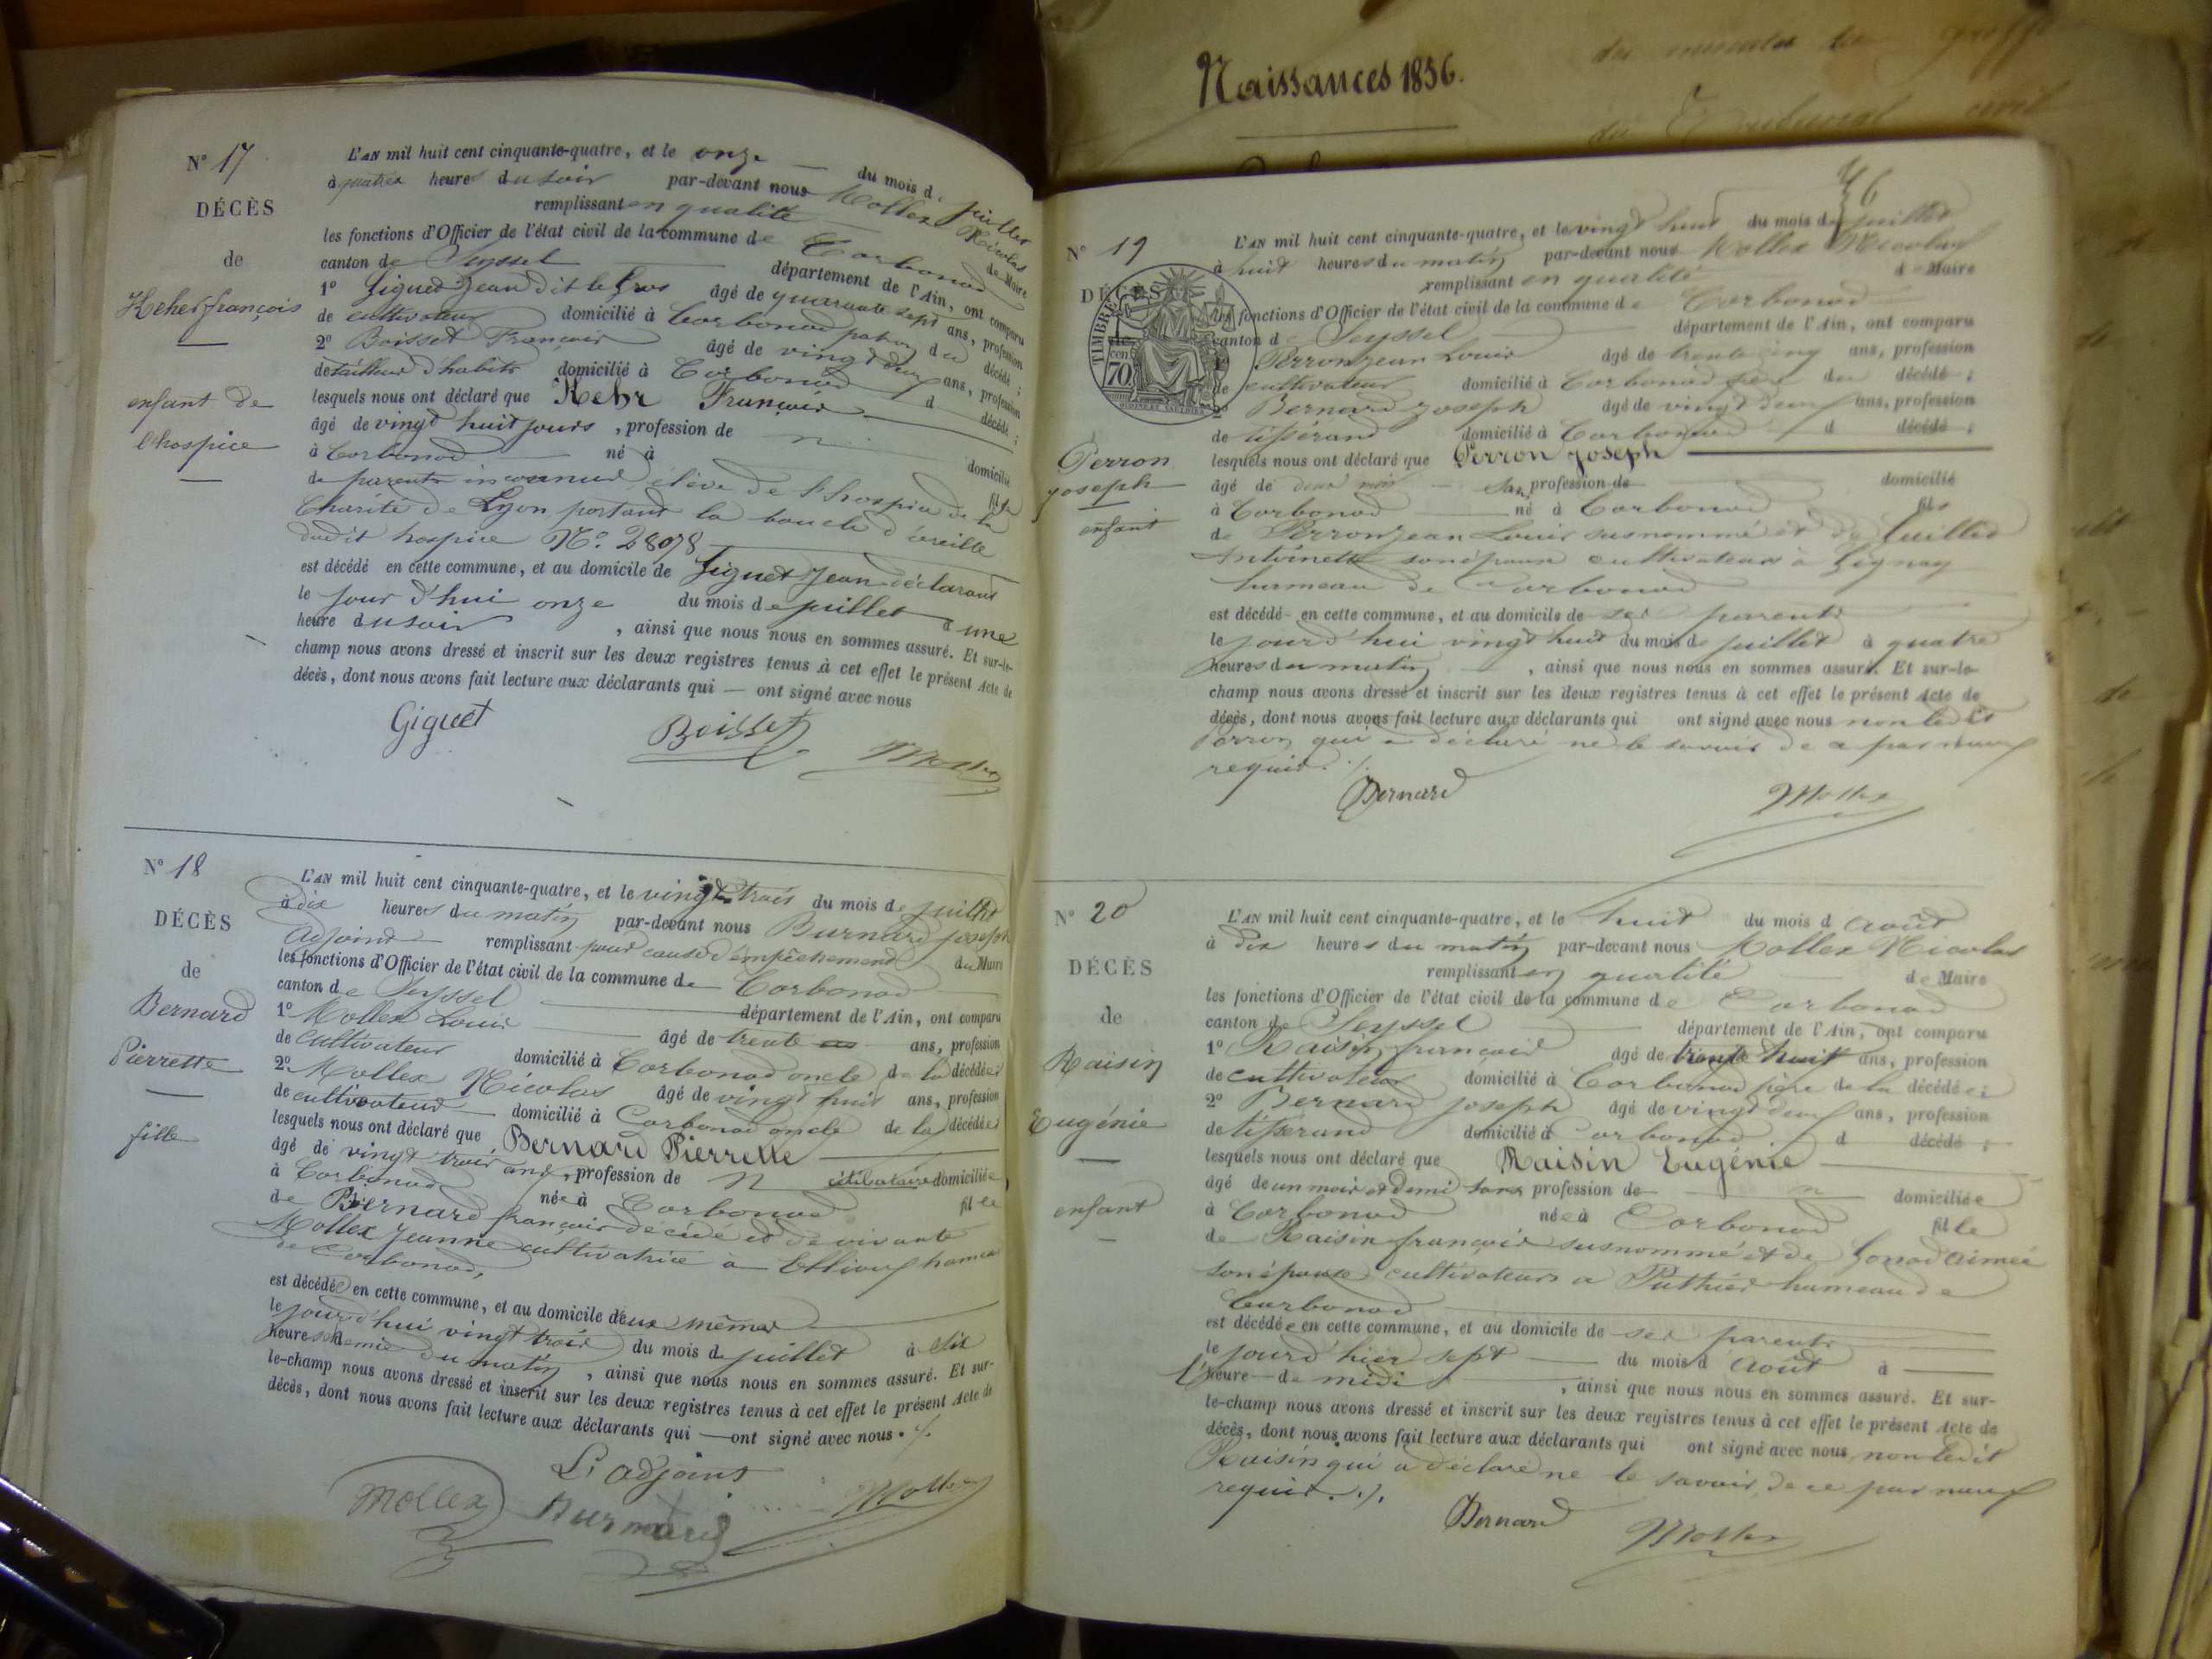 N° 17
DÉCÈS
de
Keher françois
enfant de
l'hospice
L'AN mil huit cent cinquante-quatre, et le onze du mois de juillet
à quatre heures du soir par-devant nous Mollex Nicolas
remplissant en qualité de Maire
les fonctions d'Officier de l'état civil de la commune de Corbonod
canton de Seyssel département de l'Ain, ont comparu
1° Giguet Jean dit le Gros âgé de quarante sept ans, profession
de cultivateur domicilié à Corbonod patron du décédé ;
2° Boisset François âgé de vingt deux ans, profession
de tailleur d'habits domicilié à Corbonod d décédé ;
lesquels nous ont déclaré que Kehr François
âgé de vingt huit jours, profession de domicilié
à Corbonod né à fils
de parents inconnus élève de l'hospice de la
Charité de Lyon portant la boucle d'oreille
dudit hospice N° 28078
est décédé en cette commune, et au domicile de Giguet Jean déclarant
le jour d'hui onze du mois de juillet à une
heure du soir, ainsi que nous nous en sommes assuré. Et sur-le-
champ nous avons dressé et inscrit sur les deux registres tenus à cet effet le présent Acte de
décès, dont nous avons fait lecture aux déclarants qui — ont signé avec nous
Giguet Boisset Mollex
N° 18
DÉCÈS
de
Bernard
Pierrette
fille
L'AN mil huit cent cinquante-quatre, et le vingt trois du mois de juillet
à dix heures du matin par-devant nous Burnard joseph
adjoint remplissant pour cause d'empêchement du Maire
les fonctions d'Officier de l'état civil de la commune de Corbonod
canton de Seyssel département de l'Ain, ont comparu
1° Mollex Louis âgé de trente ans, profession
de cultivateur domicilié à Corbonod oncle de la décédée
2° Mollex Nicolas âgé de vingt huit ans, profession
de cultivateur domicilié à Corbonod oncle de la décédée
lesquels nous ont déclaré que Bernard Pierrette
âgé de vingt trois ans, profession de célibataire domiciliée
à Corbonod née à Corbonod fille
de Bernard françois décédé et de vivante
Mollex Jeanne cultivatrice à hameau
de Corbonod,
est décédée en cette commune, et au domicile d'eux mêmes
le jourd'hui vingt trois du mois de juillet à six
heures et demie du matin, ainsi que nous nous en sommes assuré. Et sur-
le-champ nous avons dressé et inscrit sur les deux registres tenus à cet effet le présent Acte de
décès, dont nous avons fait lecture aux déclarants qui — ont signé avec nous ./.
L'adjoint
Mollex Burnard Mollex
Naissances 1856.
du Tribunal civil
36
N° 19
DÉCÈS
TIMBRE
70
Perron
joseph
enfant
L'AN mil huit cent cinquante-quatre, et le vingt huit du mois de juillet
à huit heures du matin par-devant nous Mollex Nicolas
remplissant en qualité de Maire
les fonctions d'Officier de l'état civil de la commune de Corbonod
canton de Seyssel département de l'Ain, ont comparu
Perron jean Louis âgé de trente cinq ans, profession
de cultivateur domicilié à Corbonod père du décédé ;
2° Bernard joseph âgé de vingt deux ans, profession
de tisserand domicilié à Corbonod d décédé ;
lesquels nous ont déclaré que Perron joseph
âgé de deux mois san profession de domicilié
à Corbonod né à Corbonod fils
de Perron jean Louis susnommé et de
Antoinette son épouse cultivateurs à Gignay
hameau de Corbonod
est décédé en cette commune, et au domicile de ses parents
le jourd'hui vingt huit du mois de juillet à quatre
heures du matin, ainsi que nous nous en sommes assuré. Et sur-le-
champ nous avons dressé et inscrit sur les deux registres tenus à cet effet le présent Acte de
décès, dont nous avons fait lecture aux déclarants qui ont signé avec nous non ledit
Perron qui a déclaré ne le savoir de ce par nous
requis ./.
Bernard Mollex
N° 20
DÉCÈS
de
Raisin
Eugénie
enfant
L'AN mil huit cent cinquante-quatre, et le huit du mois d'août
à dix heures du matin par-devant nous Mollex Nicolas
remplissant en qualité de Maire
les fonctions d'Officier de l'état civil de la commune de Corbonod
canton de Seyssel département de l'Ain, ont comparu
1° Raisin françois âgé de trente huit ans, profession
de cultivateur domicilié à Corbonod père de la décédée
2° Bernard joseph âgé de vingt deux ans, profession
de tisserand domicilié à Corbonod d décédé ;
lesquels nous ont déclaré que Raisin Eugénie
âgé de un mois et demi sans profession de domiciliée
à Corbonod née à Corbonod fille
de Raisin françois susnommé et de Gonod aimée
son épouse cultivateurs a Puthier hameau de
Corbonod
est décédée en cette commune, et au domicile de ses parents
le jourd'hier sept du mois d'août à
l'heure de midi, ainsi que nous nous en sommes assuré. Et sur-
le-champ nous avons dressé et inscrit sur les deux registres tenus à cet effet le présent Acte de
décès, dont nous avons fait lecture aux déclarants qui ont signé avec nous non ledit
Raisin qui a déclaré ne le savoir, de ce par nous
requis ./.
Bernard Mollex